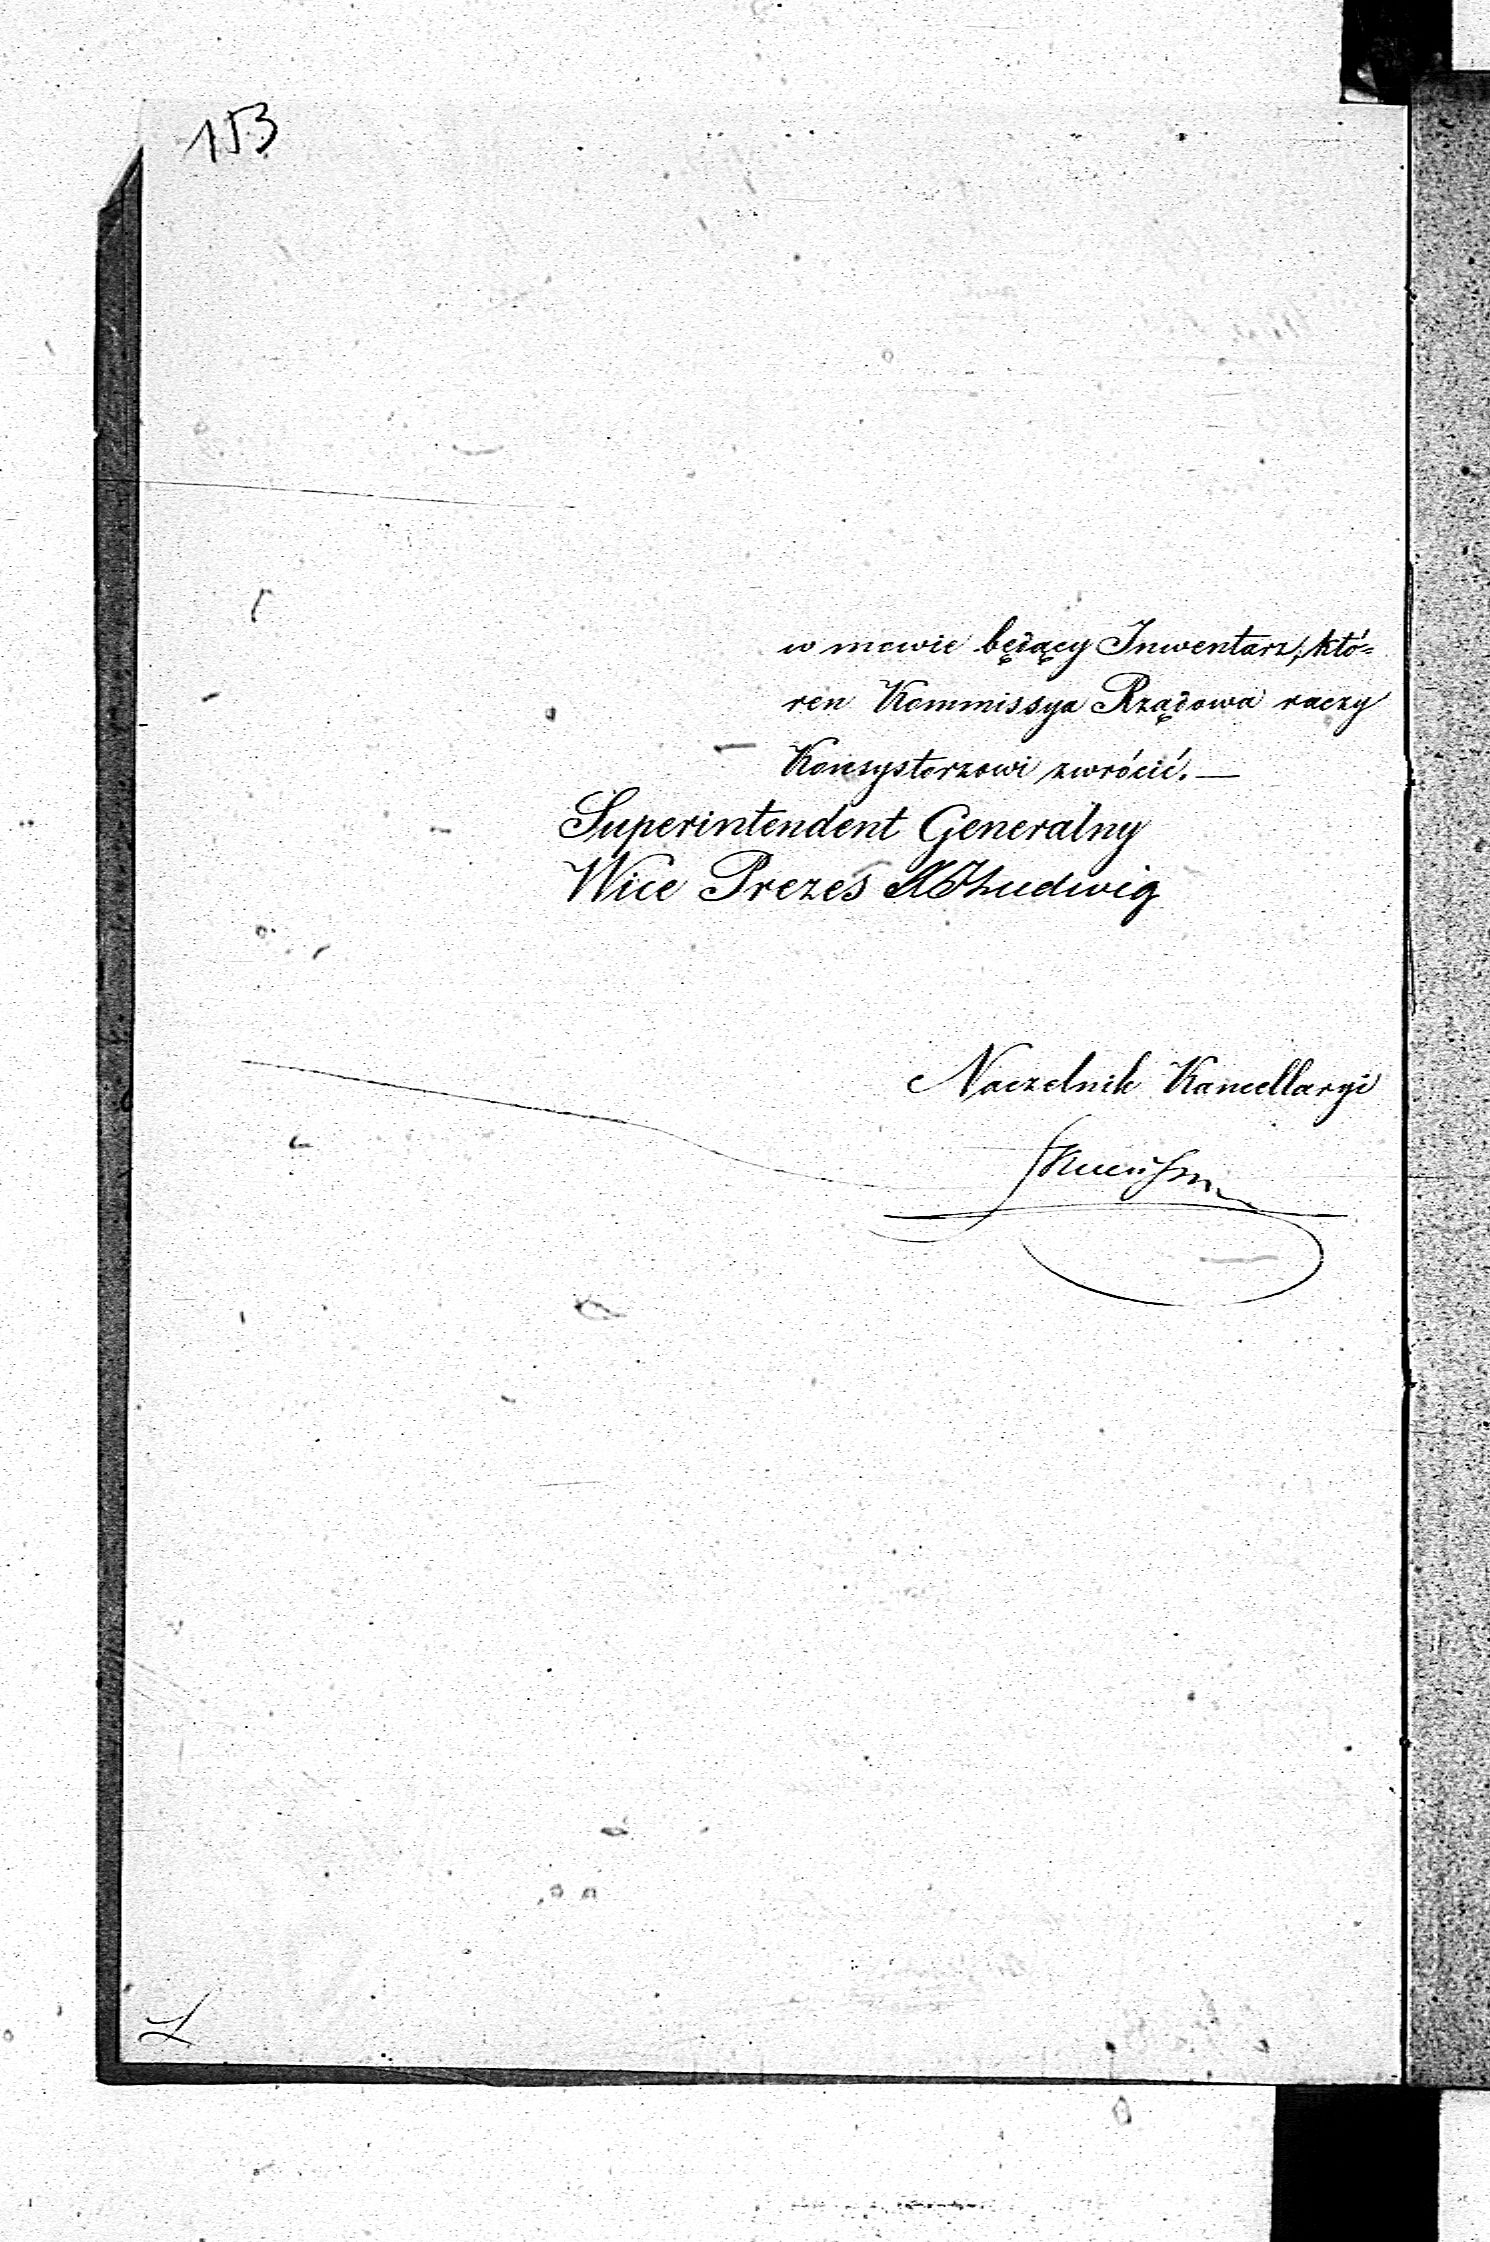 153
w mowie będący Inwentarz, któ=
ren Kommissya Rządowa raczy
Konsystorzowi zwrócić. —
Superintendent Generalny
Wice Prezes Ludwig
Naczelnik Kancellaryi